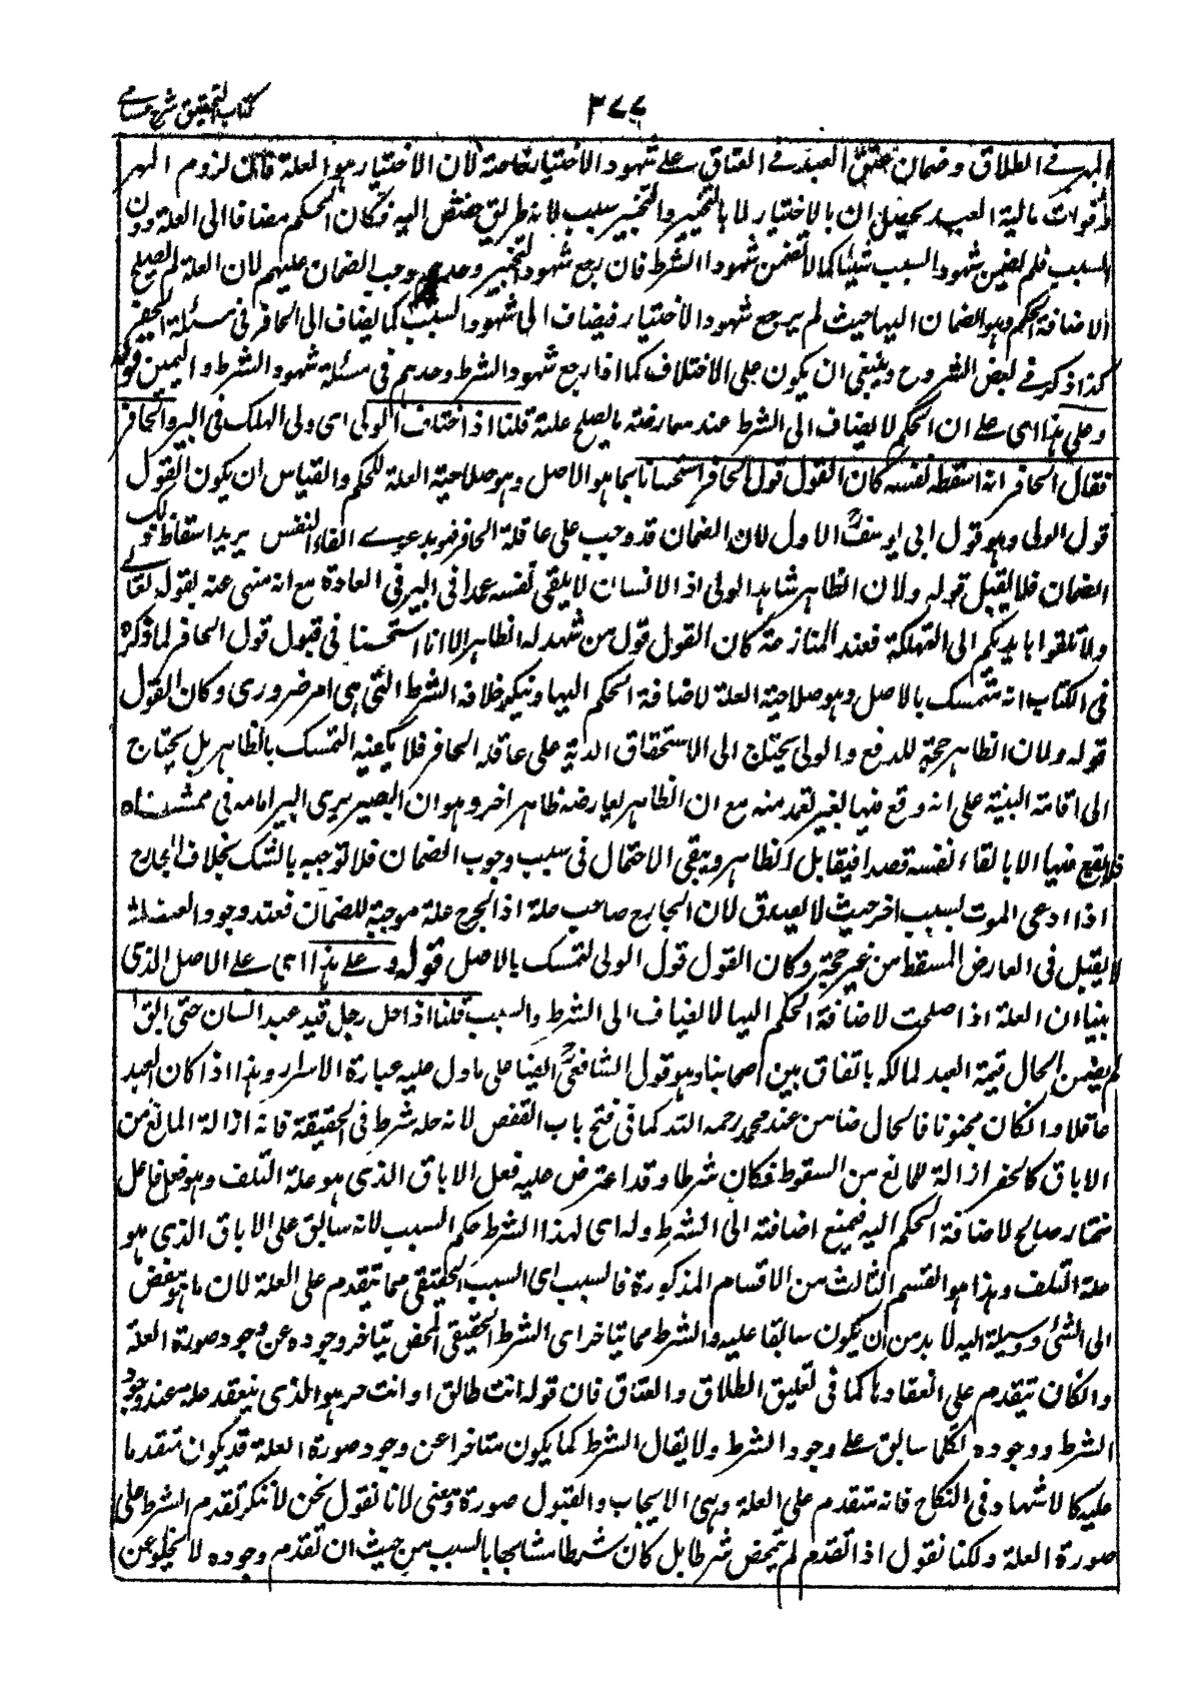 كتاب التحقيق شرح حسامي
٣٧٧
المهر في الطلاق وضمان عتق العبد في العتاق على شهود الاختيار خاصة لان الاختيار هو العلة فان لزوم المهر
وفوات مالية العبد يحصلان بالاختيار لا بالتخيير والتخيير سبب لانه طريق مفض اليه فكان الحكم مضافا الى العلة دون
السبب فلم يضمن شهود السبب شيئا كما لا تضمن شهود الشرط فان رجع شهود التخيير وحدهم وجب الضمان عليهم لان العلة لم تصلح
لاضافة الحكم وهو الضمان اليها حيث لم يرجع شهود الاختيار فيضاف الى شهود السبب كما يضاف الى الحافر في مسئلة الحفر
كذا ذكر في بعض الشروح وينبغي ان يكون على الاختلاف كما اذا رجع شهود الشرط وحدهم في مسئلة شهود الشرط واليمين قوله
وعلى هذا اى على ان الحكم لا يضاف الى الشرط عند معارضته ما يصلح علة قلنا اذا اختلف الولى اى ولى الهالك فى البير والحافر
فقال الحافر انه اسقط نفسه كان القول قول الحافر استحسانا بما هو الاصل وهو صلاحية العلة للحكم والقياس ان يكون القول
قول الولى وهو قول ابى يوسفؒ الاول لان الضمان قد وجب على عاقلة الحافر فهو بدعوى القاء النفس يريد اسقاط ذلك
الضمان فلا يقبل قوله ولان الظاهر شاهد الولى اذ الانسان لا يلقى نفسه عمدا فى البير فى العادة مع انه منهى عنه بقوله تعالى
ولا تلقوا بايديكم الى التهلكة فعند المنازعة كان القول قول من شهد له الظاهر الا انا استحسنا فى قبول قول الحافر لما ذكره
فى الكتاب انه متمسك بالاصل وهو صلاحية العلة لاضافة الحكم اليها وينكر خلافة الشرط التى هى امر ضرورى وكان القول
قوله ولان الظاهر حجة للدفع والولى يحتاج الى الاستحقاق الدية على عاقلة الحافر فلا يكفيه التمسك بالظاهر بل يحتاج
الى اقامة البينة على انه وقع فيها بغير تعمد منه مع ان الظاهر يعارضه ظاهر اخر وهو ان البصير يرى البير امامه فى ممشاه
فلا يقع فيها الا بالقاء نفسه قصدا فيقابل الظاهر ويبقى الاحتمال فى سبب وجوب الضمان فلا نوجبه بالشك بخلاف الجارح
اذا ادعى الموت بسبب اخر حيث لا يصدق لان الجارح صاحب علة اذ الجرح علة موجبة للضمان فعند وجود العلة
لا يقبل فى العارض المسقط من غير حجة وكان القول قول الولى لتمسك بالاصل قوله وعلى هذا اى على الاصل الذى
بينا ان العلة اذا صلحت لاضافة الحكم اليها لا يضاف الى الشرط والسبب قلنا اذا حل رجل قيد عبد انسان حتى ابق
لم يضمن الحال قيمة العبد لمالكه باتفاق بين اصحابنا وهو قول الشافعىؒ ايضا على ما دل عليه عبارة الاسرار وهذا اذا كان العبد
عاقلا وان كان مجنونا فالحال ضامن عند محمد رحمه الله كما فى فتح باب القفص لانه حله شرط فى الحقيقة فانه ازالة المانع من
الاباق كالحفر ازالة للمانع من السقوط فكان شرطا وقد اعترض عليه فعل الاباق الذى هو علة التلف وهو فعل فاعل
مختار صالح لاضافة الحكم اليه فيمنع اضافته الى الشرط وله اى لهذا الشرط حكم السبب لانه سابق على الاباق الذى هو
علة التلف وهذا هو القسم الثالث من الاقسام المذكورة فالسبب اى السبب الحقيقى مما يتقدم على العلة لان ما هو مفض
الى الشئ ووسيلة اليه لا بد من ان يكون سابقا عليه والشرط مما يتاخر اى الشرط الحقيقى المحض يتاخر وجوده عن وجود صورة العلة
وان كان يتقدم على انعقادها كما فى تعليق الطلاق والعتاق فان قوله انت طالق او انت حر هو الذى ينعقد علة عند وجود
الشرط ووجوده تكلما سابق على وجود الشرط ولا يقال الشرط كما يكون متاخرا عن وجود صورة العلة قد يكون متقدما
عليه كالاشهاد فى النكاح فانه متقدم على العلة وهى الايجاب والقبول صورة ومعنى لانا نقول نحن لا ننكر تقدم الشرط على
صورة العلة ولكنا نقول اذا تقدم لم يتمحض شرطا بل كان شرطا مشابها بالسبب من حيث ان تقدم وجوده لا يخلو عن